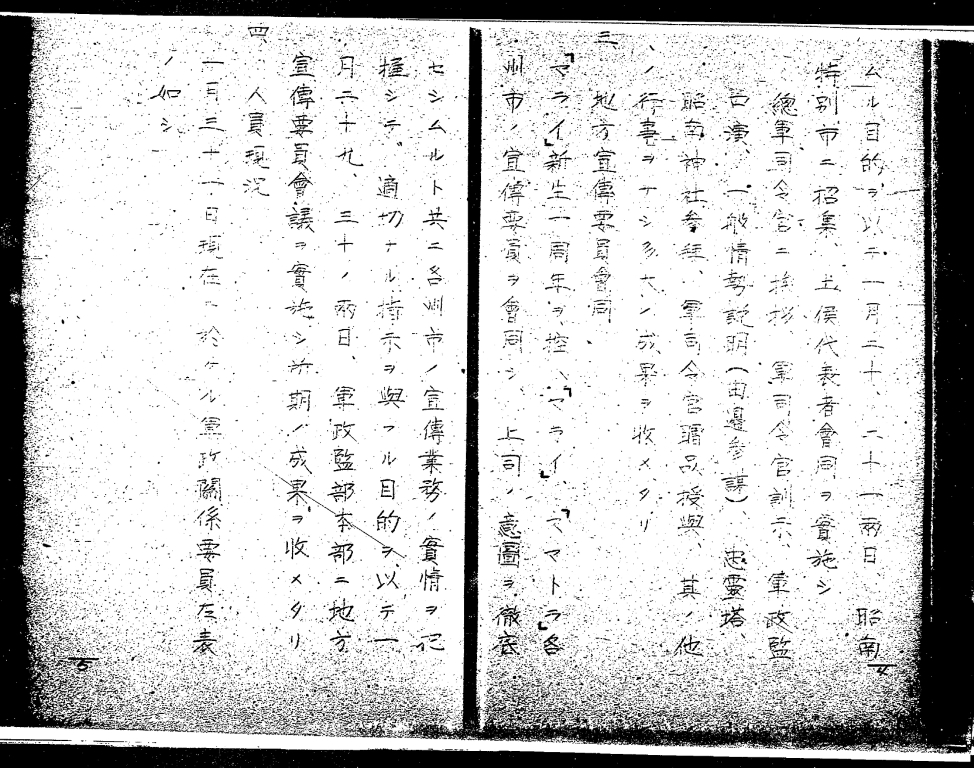 ムル目的ヲ以テ一月二十、二十一兩日 昭南
特別市ニ招集、土侯代表者會同ヲ實施シ
總軍司令官ニ挨拶 軍司令官訓示、軍政監
口演、一般情勢説明(田邊參謀)、忠靈塔、
昭南神社參拜、軍司令官贈品授與、其ノ他
ノ行事ヲナシ多大ノ成果ヲ收メタリ
三 地方宣傳要員會同
「マライ」新生一周年ヲ控ヘ「マライ」、「スマトラ」各
州市ノ宣傳要員ヲ會同シ、上司ノ意圖ヲ徹底
4
セシムルト共ニ各州市ノ宣傳業務ノ實情ヲ把
握シテ、適切ナル指示ヲ與フル目的ヲ以テ一
月二十九、三十ノ兩日、軍政監部本部ニ地方
宣傳要員會議ヲ實施シ所期ノ成果ヲ收メタリ
四 人員現況
一月三十一日現在ニ於ケル軍政關係要員左表
ノ如シ
5